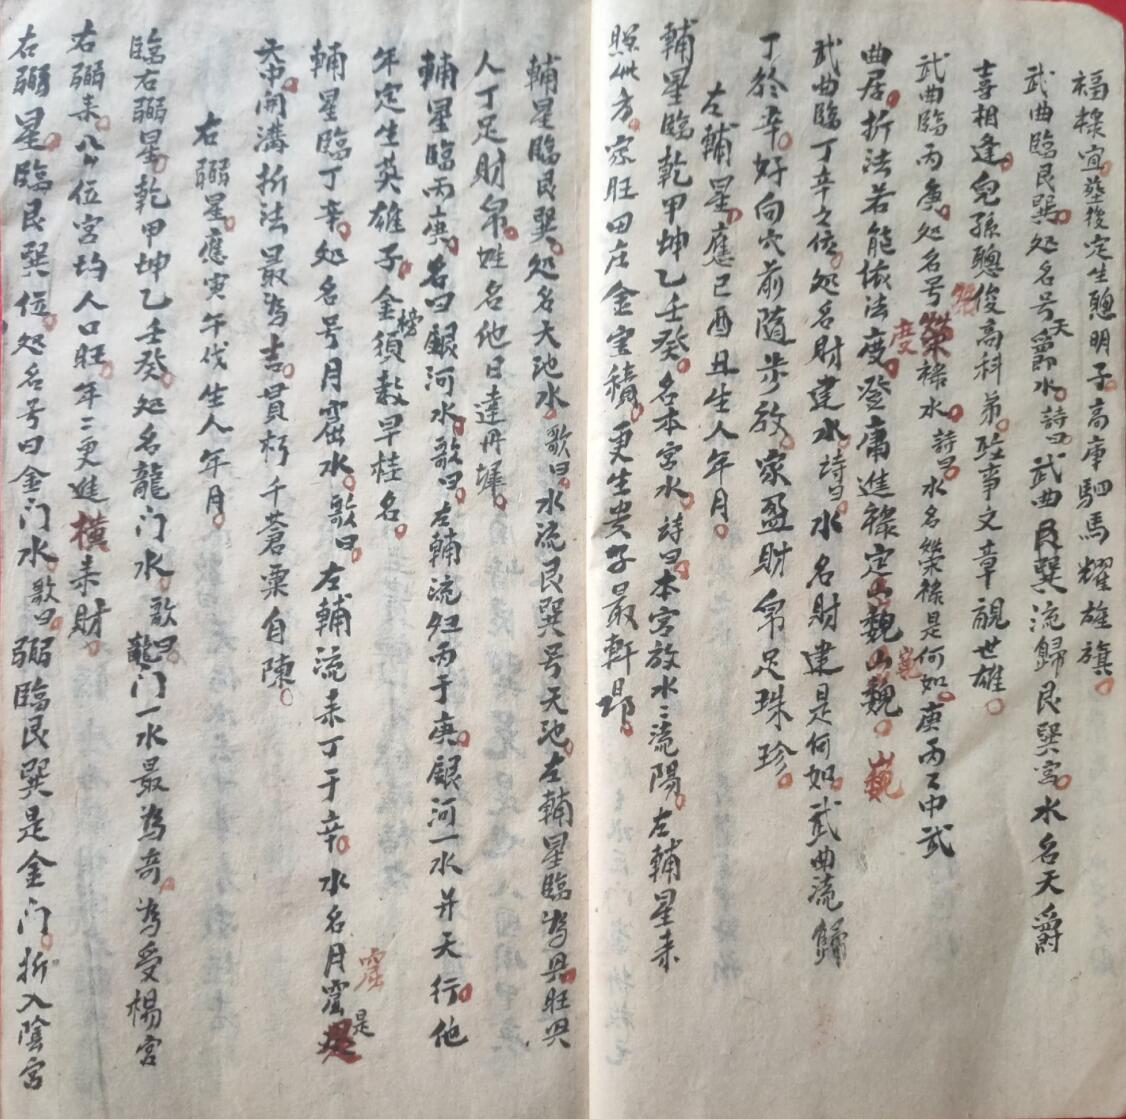 福祿宜。塟後定生聰明子。高車駟馬耀雄旗。
武曲臨艮巽。处名号天爵水。詩曰。武曲艮巽流歸艮巽宮。水名天爵
喜相逢。兒孫聰俊高科弟。歴事文章覩世雄。
武曲臨丙庚。处名号榮祿水。詩曰。水名榮祿是何如。庚丙之中武
曲居。折法若能依法度。登庸進祿定山巍山巍。巍
武曲臨丁辛之位。处名財建水。詩曰。水名財建是何如。武曲流歸
丁於辛。好向穴前随步放。家盈財帛足珠珍。
左輔星。應巳酉丑生人年月。
輔星臨乾甲坤乙壬癸。名本宮水。詩曰。本宮放水〻流陽。左輔星耒
照此方。家旺田庄金宝積。更生贵子最軒昂。
輔星臨艮巽。处名天池水。歌曰。水流艮巽号天池。左輔星臨為具。旺具
人丁足財帛。姓名他日達丹墀。
輔星臨丙庚。名曰銀河水。歌曰。左輔流归丙于庚。銀河一水并天行。他
年定生英雄子。金榜須教早桂名。
輔星臨丁辛。处名号月窟水。歌曰。左輔流耒丁于辛。水名月窟是
天中。開溝折法最為吉。貫朽千蒼粟自陳。
右弼星。應寅午戌生人年月。
臨右弼星。乾甲坤乙壬癸。处名龍门水。歌曰。龍门一水最為奇。為受楊宮
右弼耒。八个位宮均人口旺。年〻更進橫耒財。
右弼星。臨艮巽位。处名号曰金门水。歌曰。弼臨艮巽是金门。折入陰宮